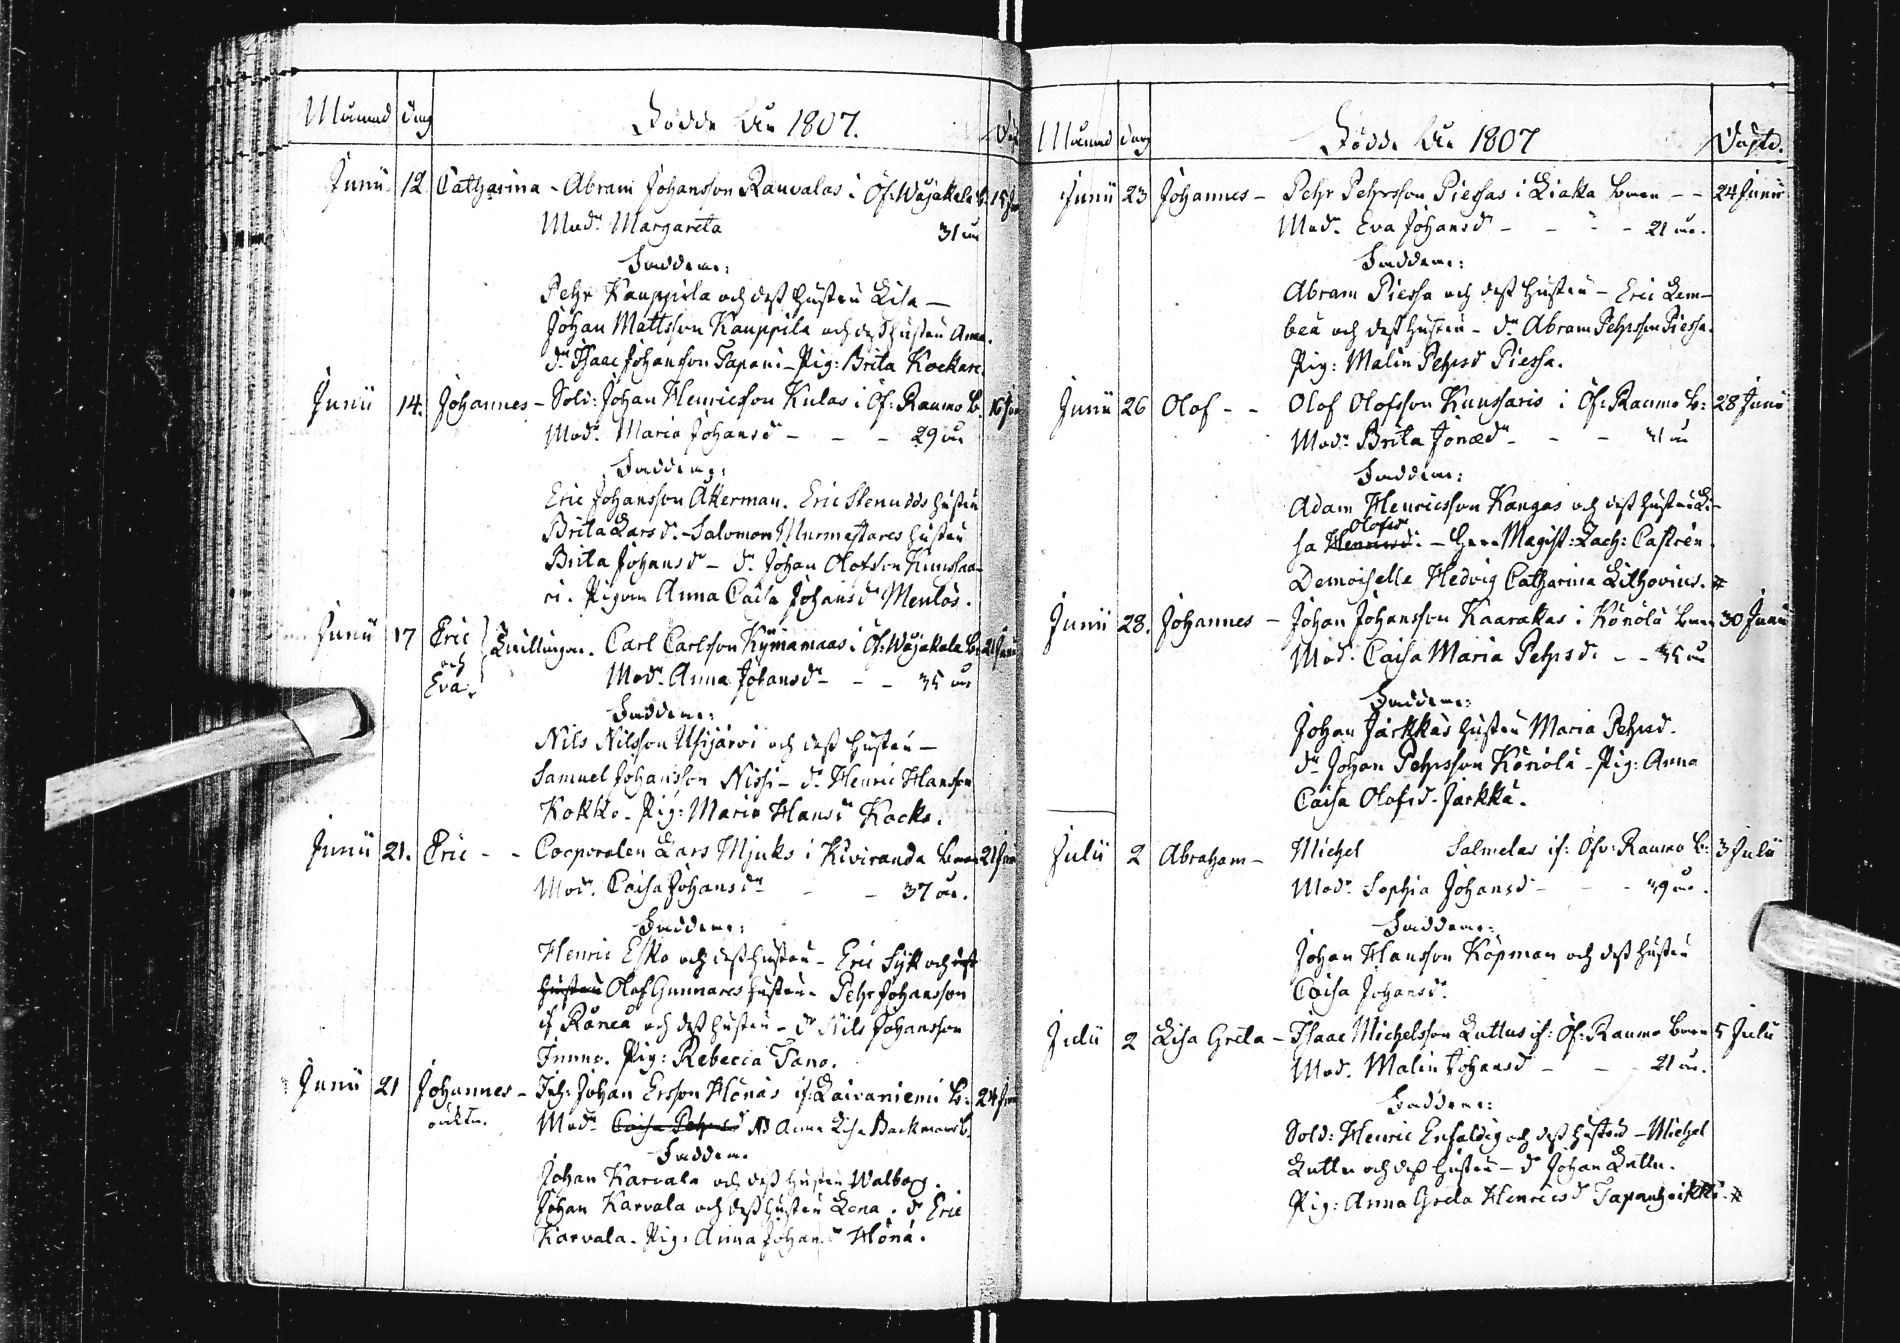 Månad dag Födde År 1807. Döp
Junii 12 Catharina - Abram Johansson Rauvalas i Öf: Wojakala b: 15 Jun
Mod:r Margareta 31 år
Faddrar:
Pehr Kauppila och dess hustru Lisa —
Johan Mattsson Kauppila och dess hustru Anna.
d:r Isaac Johansson Tapani - Pig: Brita Kockare
Junii 14. Johannes - Sold: Johan Henricsson Kulas i Öf: Raumo b. 16 Jun
Mod:r Maria Johansd:r - - - 29 år
Faddrar:
Eric Johansson Åkerman. Eric Stenudds hustru
Brita Larsd. - Salomon Murmestares hustru
Brita Johansd:r - d:r Johan Olofsson Kuussaa-
ri. Pigan Anna Caisa Johansd:r Mentös.
Junii 17 Eric och Eva Tvillingar. Carl Carlsson Kymämaas i Öf: Wojakala b: 21 Junii
Mod:r Anna Johansd:r - - - 35 år
Faddrar:
Nils Nilsson Ylijärvi och dess hustru —
Samuel Johansson Nissi - d:r Henric Hansson
Kokko - Pig: Maria Hansd:r Kocko.
Junii 21. Eric - - Corporalen Lars Mjuks i Kiviranda byn 21 Jun
Mod:r Caisa Johansd:r - - 37 år.
Faddrar:
Henric Esko och dess hustru - Eric Syk och dess
hustru Olof Gunnares hustru - Pehr Johansson
if: Råneå och dess hustru - d:r Nils Johansson
Junno. Pig: Rebecca Tano.
Junii 21 Johannes - Johan Ersson Hönäs if: Laivaniemi b: 24 Jun
oäkta. Mod:r Caisa Pehrsd Anna Lisa Backman
Faddrar
Johan Karvala och dess hustru Walborg.
Johan Karvala och dess hustru Lena. d:r Eric
Karvala. Pig: Anna Johansd Hönä.
Månad dag Födde År 1807 Döpte.
Junii 23 Johannes - Pehr Pehrsson Piessas i Liakka byen - - 24 Junii
Mod:r Eva Johansd - - - - 21 år.
Faddrar:
Abram Piessa och dess hustru - Eric Lem-
beä och dess hustru - d:r Abram Pehrsson Piessa.
Pig: Malin Pehrsd Piessa.
Junii 26 Olof - - Olof Olofsson Kuussaris i Öf: Raumo b: 28 Junii
Mod:r Brita Jonæd:r - - - 41 år
Faddrar:
Adam Henricsson Kangas och dess hustru Li-
sa Henricsd: Olofsd - Herr Magist: Zach: Castrén.
Demoiselle Hedvig Catharina Lithovius. #
Junii 28. Johannes - Johan Johansson Kaarakas i Könölä byen 30 Junii
Mod:r Caisa Maria Pehrsd: - - 35 år
Faddrar:
Johan Jarkkäs hustru Maria Pehrsd.
d:r Johan Pehrsson Könölä - Pig: Anna
Caisa Olofsd. Jarkkä.
Julii 2 Abraham - Michel Salmelas if: Öfv: Raumo b: 3 Julii
Mod:r Sophia Johansd - - - 49 år.
Faddrar:
Johan Hansson Köpman och dess hustru
Caisa Johansd:
Julii 2 Lisa Greta - Isaac Michelsson Luttus if: Öf: Raumo byen 5 Julii
Mod. Malin Johansd - - - 21 år.
Faddrar:
Sold: Henric Enfaldig och dess hustru - Michel
Luttu och dess hustru - d:r Johan Luttu.
Pig: Anna Greta Henricsd Tapanheikki. #